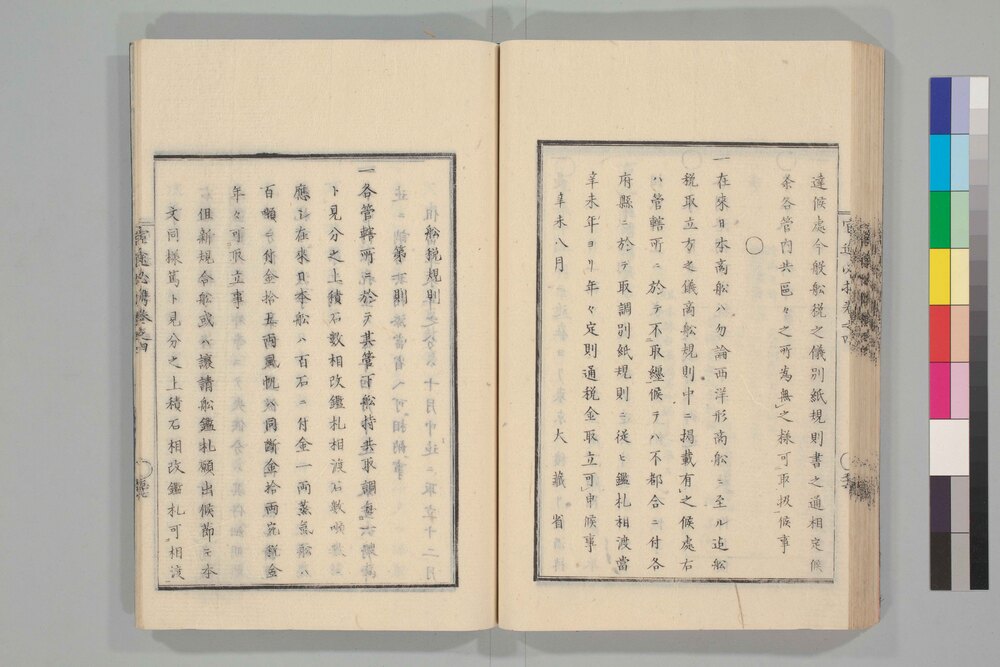 達候處今般船税之儀別紙規則書之通相定候
条各管内共區々之所為無之様可取扱候事
〇
一在來日本商船ハ勿論西洋形商船ニ至ル迄船
税取立方之儀商船規則中ニ掲載有之候處右
ハ管轄所ニ於テ不取纏候テハ不都合ニ付各
府縣ニ於テ取調別紙規則ニ従ヒ鑑札相渡當
辛未年ヨリ年々定則通税金取立可申候事
辛未八月 大藏省
船税規則
第一則
一各管轄所ニ於テ其管下船持共取調
ト見分之上積石数相改鑑札相渡石数噸数ニ
應シ在來日本船ハ百石ニ付金一両蒸氣船ハ
百噸ニ付金拾五両風帆船同断金拾両宛税金
年々可取立事
但新規合船或ハ譲請船鑑札願出候節モ本
文同様篤ト見分之上積石相改鑑札可相渡